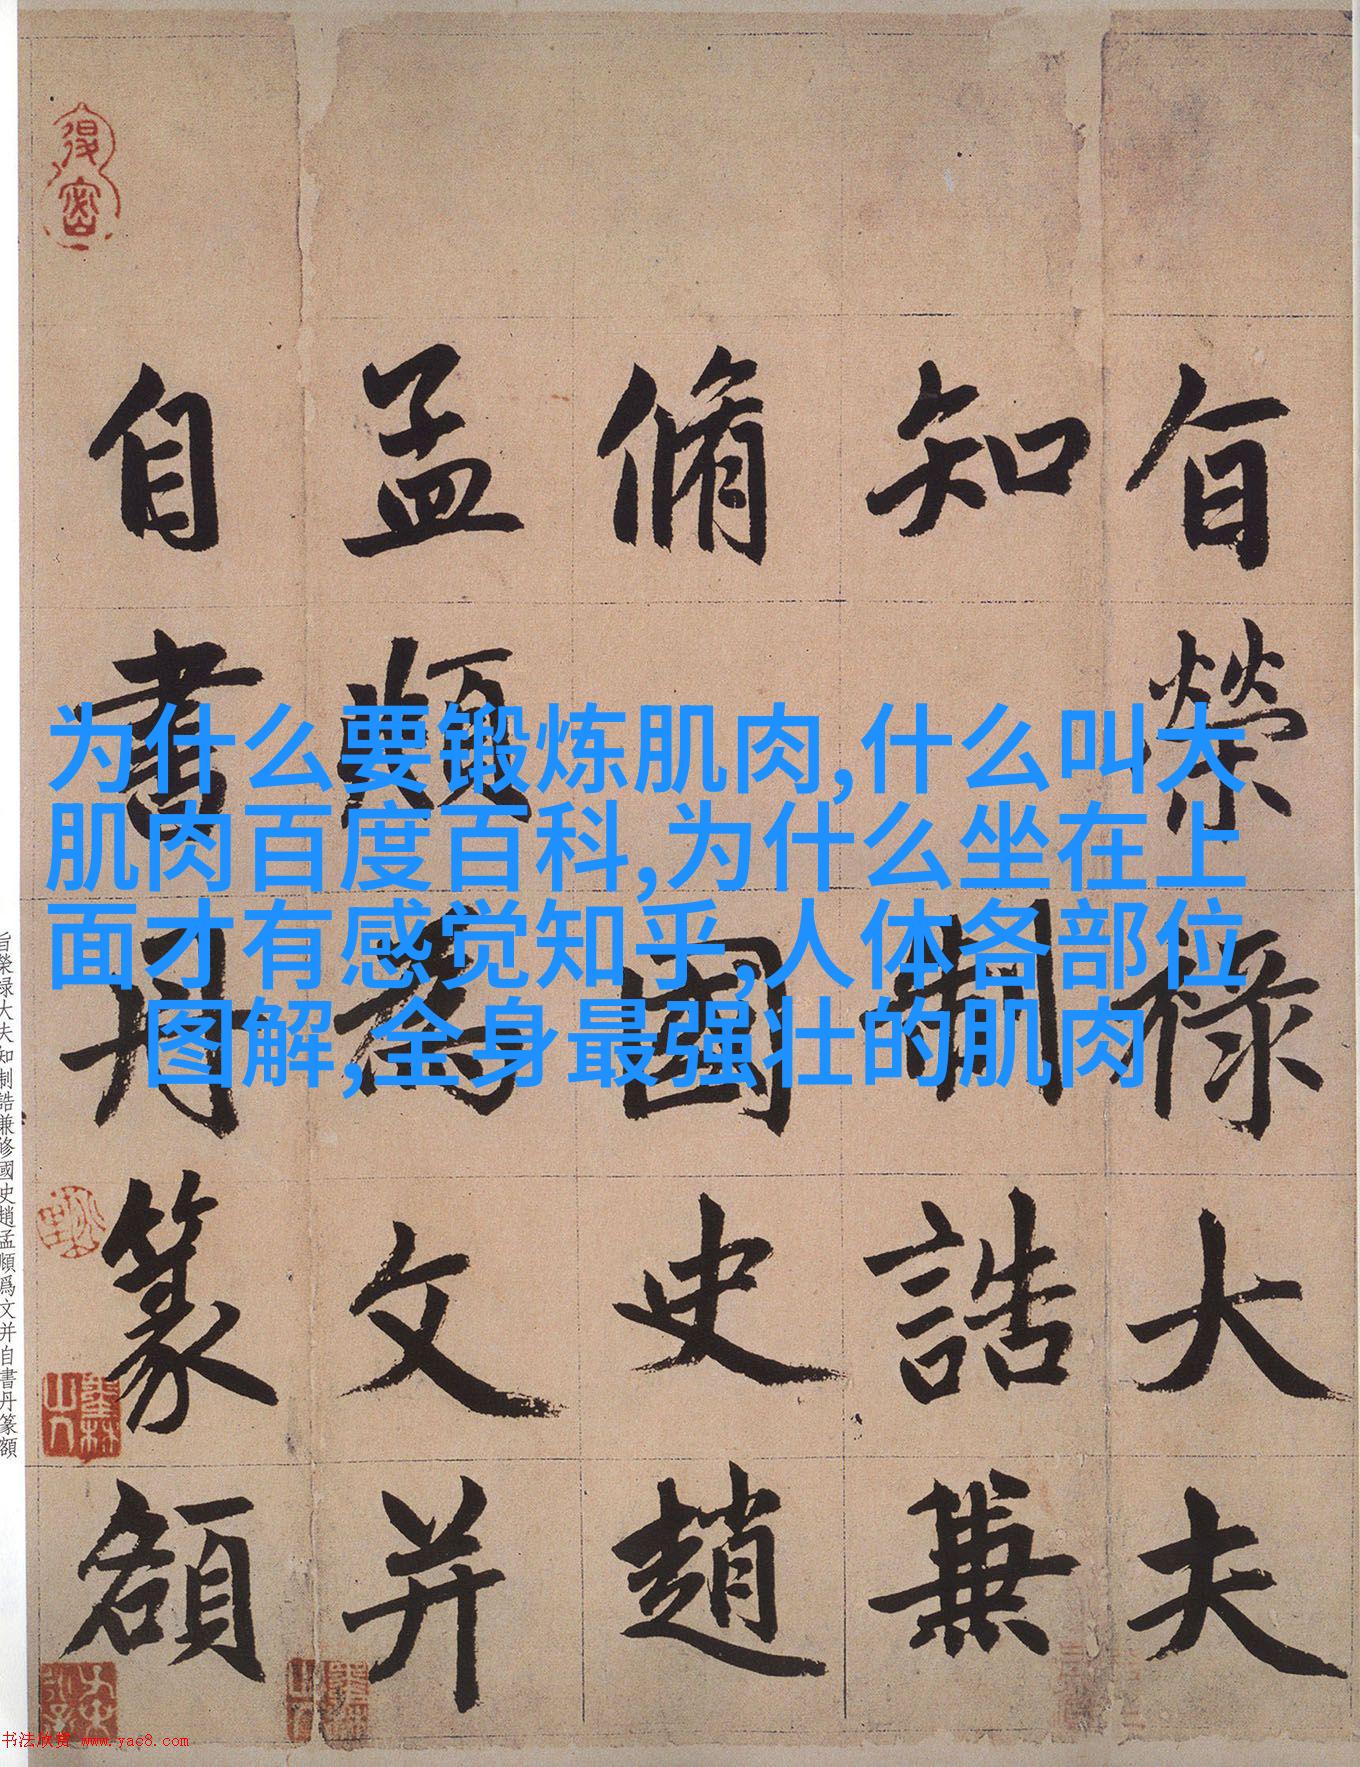 旨榮祿大夫
知制誥兼
脩國史趙
孟頫為文并
自書丹篆額
为什么要锻炼肌肉,什么叫大
肌肉百度百科,为什么坐在上
面才有感觉知乎,人体各部位
图解,全身最强壮的肌肉
旨榮禄大夫知制誥兼修國史趙孟頫爲文并自書丹篆額
书法欣赏 www.yac8.com